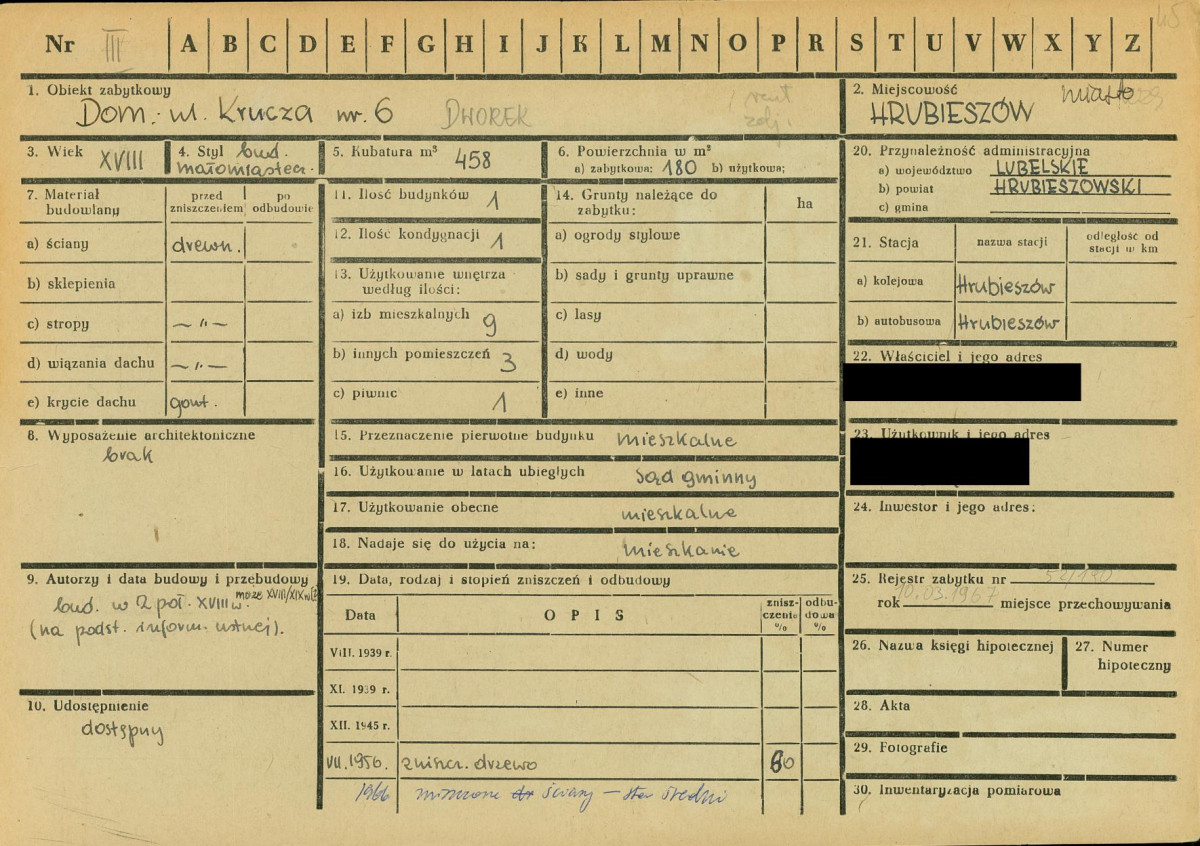 Nr III A B C D E F G H I J K L M N O P R S T U V W X Y Z
1. Obiekt zabytkowy
Dom. ul. Krucza nr. 6 DWOREK
2. Miejscowość miasto
HRUBIESZÓW
3. Wiek XVIII
4. Styl bud.
małomiastecz.
5. Kubatura m³ 458
6. Powierzchnia w m²
a) zabytkowa: 180 b) użytkowa:
7. Materiał budowlany
przed zniszczeniem
po odbudowie
a) ściany drewn.
b) sklepienia
c) stropy —„—
d) wiązania dachu —„—
e) krycie dachu gont.
8. Wyposażenie architektoniczne
brak
9. Autorzy i data budowy i przebudowy
bud. w 2 poł. XVIII w. może XVIII/XIX w
(na podst. inform. ustnej).
10. Udostępnienie
dostępny
11. Ilość budynków 1
12. Ilość kondygnacji 1
13. Użytkowanie wnętrza
według ilości:
a) izb mieszkalnych 9
b) innych pomieszczeń 3
c) piwnic 1
14. Grunty należące do
zabytku: ha
a) ogrody stylowe
b) sady i grunty uprawne
c) lasy
d) wody
e) inne
15. Przeznaczenie pierwotne budynku mieszkalne
16. Użytkowanie w latach ubiegłych sąd gminny
17. Użytkowanie obecne mieszkalne
18. Nadaje się do użycia na: mieszkanie
19. Data, rodzaj i stopień zniszczeń i odbudowy
Data OPIS zniszczenie % odbudowa %
VIII. 1939 r.
XI. 1939 r.
XII. 1945 r.
VII. 1956. zniszcz. drzewo 60
1966 ściany — średni
20. Przynależność administracyjna
a) województwo LUBELSKIE
b) powiat HRUBIESZOWSKI
c) gmina
21. Stacja nazwa stacji odległość od stacji w km
a) kolejowa Hrubieszów
b) autobusowa Hrubieszów
22. Właściciel i jego adres
23. Użytkownik i jego adres
24. Inwestor i jego adres:
25. Rejestr zabytku nr
rok 10.03.1967 miejsce przechowywania
26. Nazwa księgi hipotecznej
27. Numer
hipoteczny
28. Akta
29. Fotografie
30. Inwentaryzacja pomiarowa